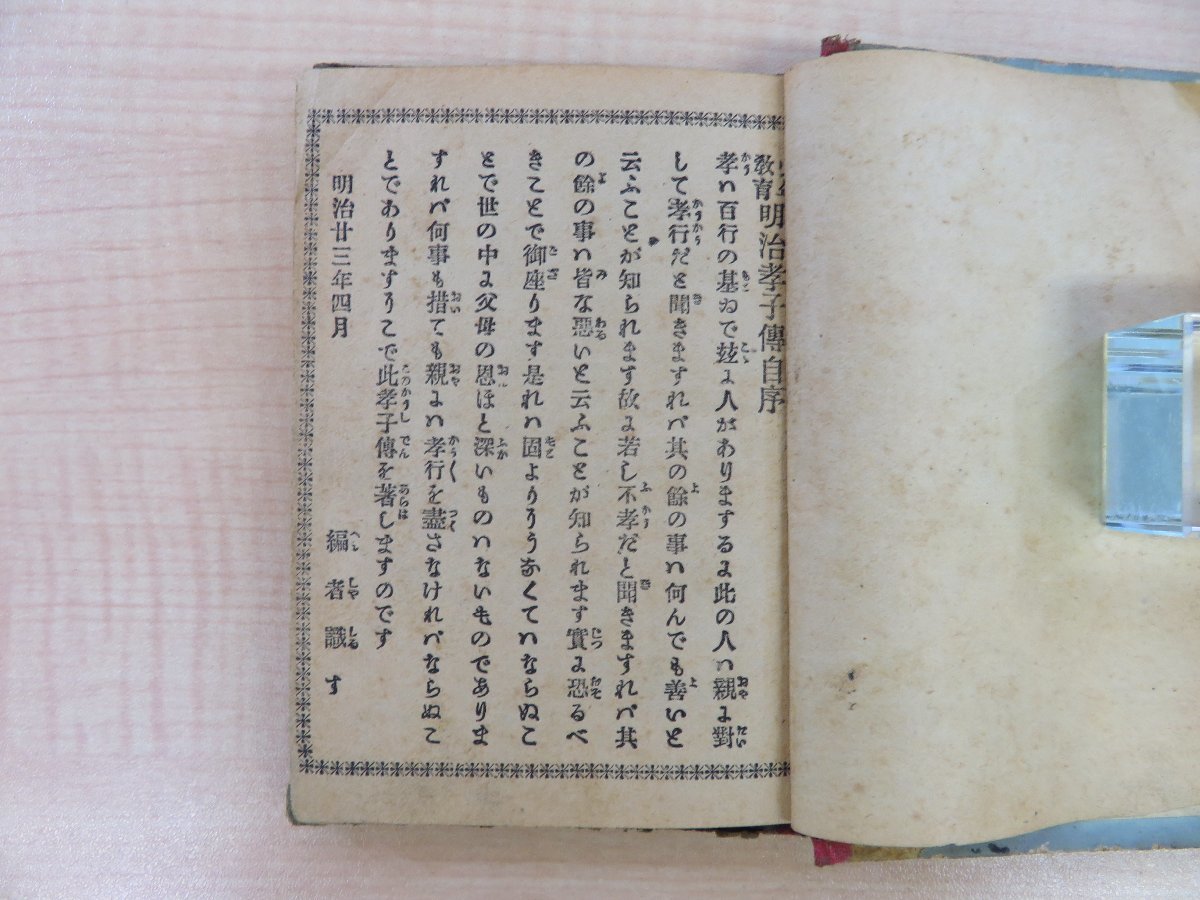 教育明治孝子傳自序
孝ハ百行の基ゐで玆に人がありまするに此の人ハ親に對
して孝行だと聞きますれバ其の餘の事ハ何んでも善いと
云ふことが知られます故に若し不孝だと聞きますれバ其
の餘の事ハ皆な惡いと云ふことが知られます實に恐るべ
きことで御座ります是れハ固よりそうなくてハならぬこ
とで世の中に父母の恩ほと深いものハないものでありま
すれバ何事も措ても親にハ孝行を盡さなけれバならぬこ
とでありますそこで此孝子傳を著しますのです
明治廿三年四月
編者識す